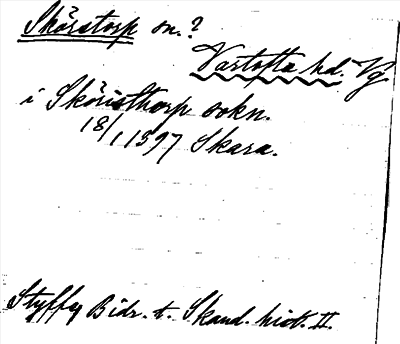 Skörstorp sn.?
Vartofta hd. Vg
i Sköristhorp sokn.
18/1 1397 Skara.
Styffe Bidr. t. Skand. hist. II.